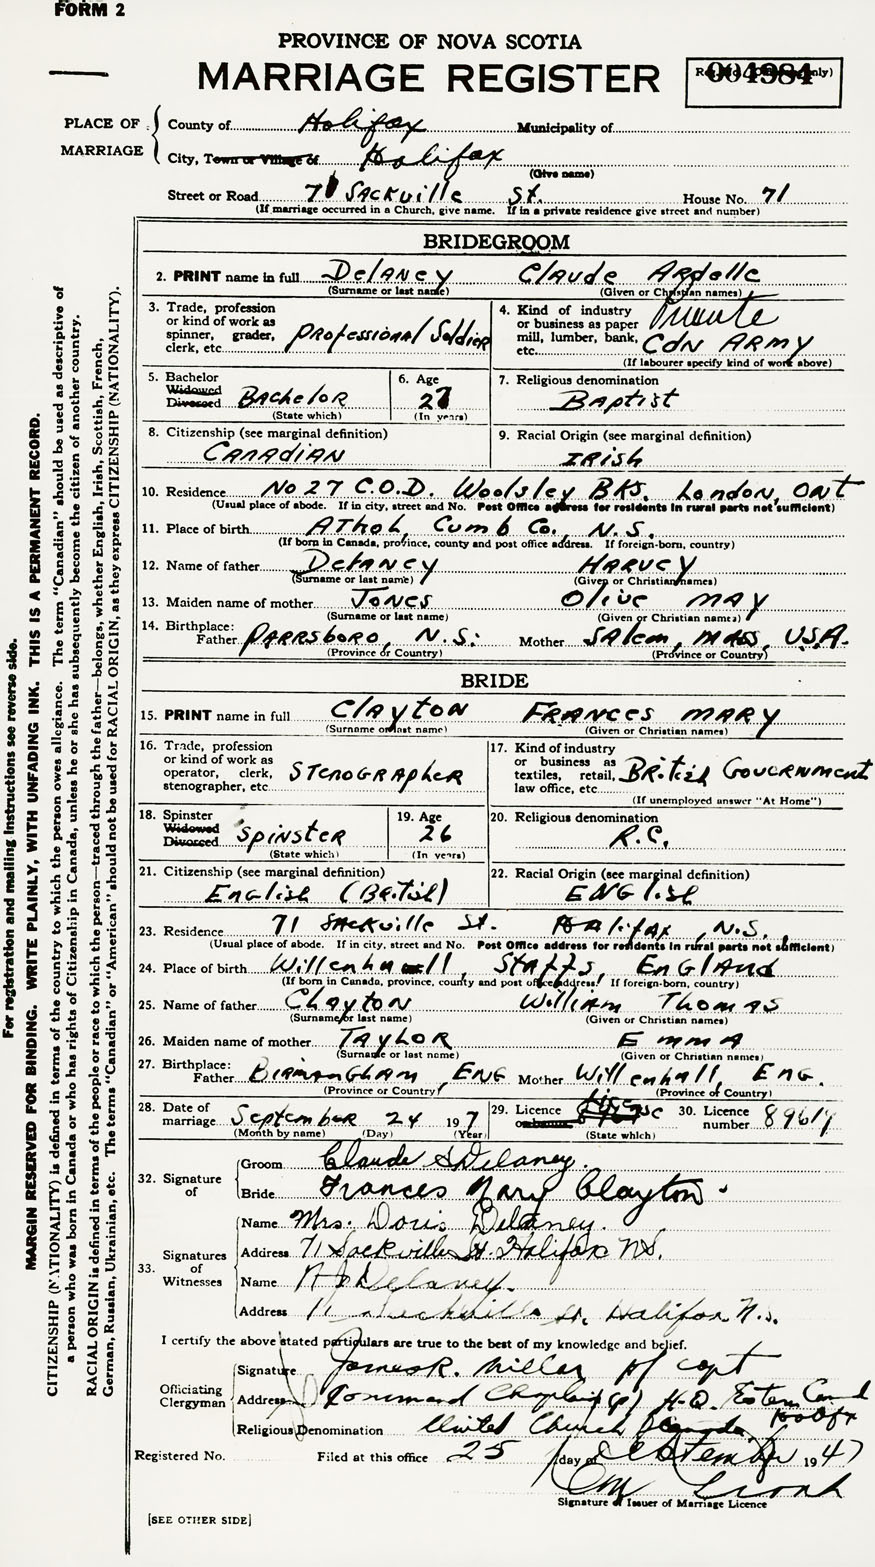 FORM 2
PROVINCE OF NOVA SCOTIA
MARRIAGE REGISTER
004984
PLACE OF MARRIAGE
County of Halifax Municipality of
City, Town or Village of Halifax
(Give name)
Street or Road 71 Sackville St. House No. 71
(If marriage occurred in a Church, give name. If in a private residence give street and number)
BRIDEGROOM
2. PRINT name in full Delaney Claude Ardelle
(Surname or last name) (Given or Christian names)
3. Trade, profession or kind of work as spinner, grader, clerk, etc. Professional Soldier
4. Kind of industry or business as paper mill, lumber, bank, etc. Private Cdn Army
(If labourer specify kind of work above)
5. Bachelor Widowed Divorced Bachelor
(State which)
6. Age 27
(In years)
7. Religious denomination Baptist
8. Citizenship (see marginal definition) Canadian
9. Racial Origin (see marginal definition) Irish
10. Residence No 27 C.O.D. Woolsley BKS. London, Ont
(Usual place of abode. If in city, street and No. Post Office address for residents in rural parts not sufficient)
11. Place of birth Athol, Cumb Co., N.S.
(If born in Canada, province, county and post office address. If foreign-born, country)
12. Name of father Delaney Harvey
(Surname or last name) (Given or Christian names)
13. Maiden name of mother Jones Olive May
(Surname or last name) (Given or Christian names)
14. Birthplace: Father Parrsboro, N.S. Mother Salem, Mass, U.S.A.
(Province or Country) (Province or Country)
BRIDE
15. PRINT name in full Clayton Frances Mary
(Surname or last name) (Given or Christian names)
16. Trade, profession or kind of work as operator, clerk, stenographer, etc. Stenographer
17. Kind of industry or business as textiles, retail, law office, etc. British Government
(If unemployed answer "At Home")
18. Spinster Widowed Divorced Spinster
(State which)
19. Age 26
(In years)
20. Religious denomination R.C.
21. Citizenship (see marginal definition) English (British)
22. Racial Origin (see marginal definition) English
23. Residence 71 Sackville St. Halifax, N.S.
(Usual place of abode. If in city, street and No. Post Office address for residents in rural parts not sufficient)
24. Place of birth Willenhall, Staffs, England
(If born in Canada, province, county and post office address. If foreign-born, country)
25. Name of father Clayton William Thomas
(Surname or last name) (Given or Christian names)
26. Maiden name of mother Taylor Emma
(Surname or last name) (Given or Christian names)
27. Birthplace: Father Birmingham, Eng Mother Willenhall, Eng.
(Province or Country) (Province or Country)
28. Date of marriage September 24 197
(Month by name) (Day) (Year)
29. Licence
(State which)
30. Licence number
32. Signature of
Groom Claude A Delaney.
Bride Frances Mary Clayton.
33. Signatures of Witnesses
Name Mrs. Doris Delaney.
Address 71 Sackville St. Halifax N.S.
Name Delaney.
Address Sackville St. Halifax N.S.
I certify the above stated particulars are true to the best of my knowledge and belief.
Officiating Clergyman
Signature James R. Miller capt
Address Command Chaplain (P) H.Q. Eastern Comd
Halifax
Religious Denomination United Church Canada
Registered No. Filed at this office 25 day of September 1947
Signature of Issuer of Marriage Licence
[SEE OTHER SIDE]
For registration and mailing instructions see reverse side.
MARGIN RESERVED FOR BINDING. WRITE PLAINLY, WITH UNFADING INK. THIS IS A PERMANENT RECORD.
CITIZENSHIP (NATIONALITY) is defined in terms of the country to which the person owes allegiance. The term "Canadian" should be used as descriptive of
a person who was born in Canada or who has rights of Citizenship in Canada, unless he or she has subsequently become the citizen of another country.
RACIAL ORIGIN is defined in terms of the people or race to which the person—traced through the father—belongs, whether English, Irish, Scottish, French,
German, Russian, Ukrainian, etc. The terms "Canadian" or "American" should not be used for RACIAL ORIGIN, as they express CITIZENSHIP (NATIONALITY).